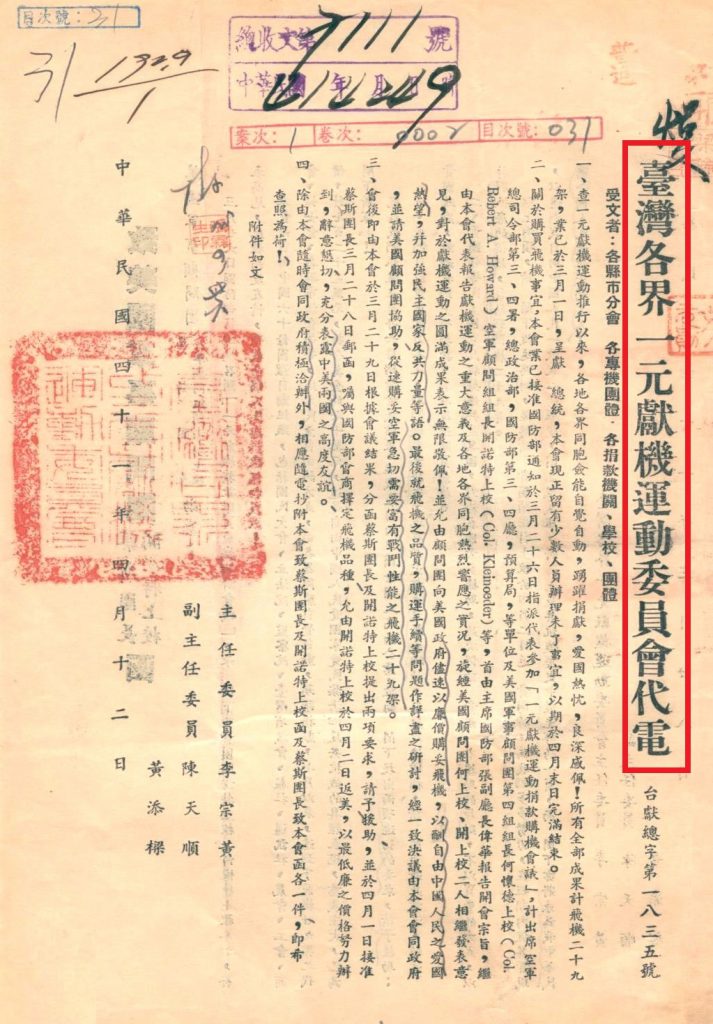 目次號：31
31 1329/1
總收文第7111號
案次：1 卷次：0002 目次號：031
普通
臺灣各界一元獻機運動委員會代電 台獻總字第一八三五號
受文者：各縣市分會 各專機團體．各捐款機關、學校、團體
一、查一元獻機運動推行以來，各地各界同胞僉能自覺自動，踴躍捐獻，愛國熱忱，良深感佩！所有全部成果計飛機二十九
架，業已於三月一日，呈獻 總統，本會現正留有少數人員辦理未了事宜，以期於四月末日完滿結束。
二、關於購買飛機事宜，本會業已接准國防部通知於三月二十六日指派代表參加「一元獻機運動捐款購機會議」，計出席空軍
總司令部第三、四署，總政治部，國防部第三、四廳，預算局，等單位及美國軍事顧問團第四組組長何懷德上校（Col.
Robert A. Howard）空軍顧問組組長開諾特上校（Col. Kleinoeder）等，首由主席國防部張副廳長偉華報告開會宗旨，繼
由本會代表報告獻機運動之重大意義及各地各界同胞熱烈響應之實況，旋經美國顧問團何上校、開上校二人相繼發表意
見，對於獻機運動之圓滿成果表示無限敬佩！並允由顧問團向美國政府儘速以廉價購妥飛機，以酬自由中國人民之愛國
熱望，幷加強民主國家反共力量等語。最後就飛機之品質，購運手續等問題作詳盡之硏討，經一致決議由本會會同政府
，並請美國顧問團協助，從速購妥空軍急切需要富有戰鬥性能之飛機二十九架。
三、會後即由本會於三月二十九日根據會議結果，分函蔡斯團長及開諾特上校提出兩項要求，請予援助，並於四月一日接准
蔡斯團長三月二十八日郵函，囑與國防部會商擇定飛機品種，允由開諾特上校於四月二日返美，以最低廉之價格努力辦
到，辭意懇切，充分表露中美兩國之高度友誼。
四、除由本會隨時會同政府積極洽辦外，相應隨電抄附本會致蔡斯團長及開諾特上校函及蔡斯團長致本會函各一件，即希
查照爲荷！
附件如文
主任委員 李宗黃
副主任委員 陳天順
黃添樑
中華民國四十一年四月十二日